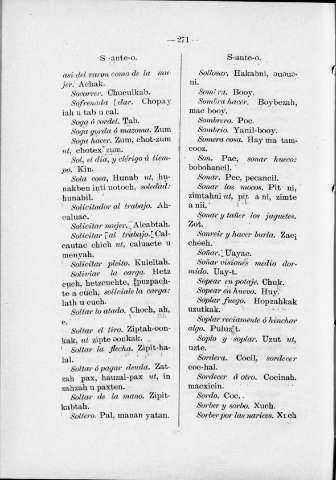 — 271 —
S -ante-o.
así del varon como de la mu-
jer. Achak.
Socorrer. Chuculkab.
Sofrenada [dar. Chopay
iah u tab u cal.
Soga ó cordel. Tab.
Soga gorda ó maroma. Zum
Soga hacer. Zum, chot-zum
ut, chotex zum.
Sol, el dia, y clérigo ú tiem-
po. Kin.
Sola cosa, Hunab ut, hu-
nakben inti notoch, soledad:
hunabil.
Solicitador al trabajo. Ah-
caluac.
Solicitar mujer. Alcabtah.
Solicitar [al trabajo. Cal-
cautac chich ut, caluncte u
menyah.
Solicitar pleito. Kuleltah.
Soliviar la carga. Hetz
cuch, hetzcuchte,
te a cuch, solíciale la carga:
lath u cuch.
Soltar lo atado. Choch, ah,
e.
Soltar el tiro. Ziptah-oon-
kak, ut zipte oonkak.
Soltar la flecha. Zipit-ha-
lal.
Soltar ó pagar deuda. Zat-
zah pax, hauzal-pax ut, in
zahzah u paxten.
Soltar de la mano. Zipit-
kabtah.
Soltero. Pal, manan yatan.
S-ante-o.
Sollosar. Hakabni,
ni.
Sombra. Booy.
Sombra hacer. Boybezah,
mac booy.
Sombrero. Poc.
Sombrío. Yanil-booy.
Somera cosa. Hay ma tam-
cooz.
Son. Pac, sonar hueco:
bobohancil.
Sonar. Pec, pecancil.
Sonar los mocos. Pit ni,
zimtahni ut, pit a ni, zimte
a nii.
Sonar y tañer los juguetes.
Zot.
Sonreir y hacer burla. Zac
chéeh.
Soñar. Uayac.
Soñar visiones medio dor-
mido. Uay-t.
Sopear en potaje. Chuk.
Sopear en hueco. Huy.
Soplar fuego. Hopzahkak
uxutkak.
Soplar reciamente ó hinchar
algo. Puluzt.
Soplo y soplar. Uzut ut,
uzte.
Sordera. Cocil, sordecer
coc-hal.
Sordecer á otro. Cocinah.
macxicin.
Sordo. Coc.
Sorber y sorbo. Xuch.
Sorber por las narices. Xuch